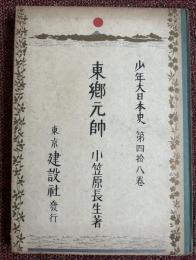 少年大日本史 第四拾八卷
東郷元帥 小笠原長生著
東京 建設社 發行